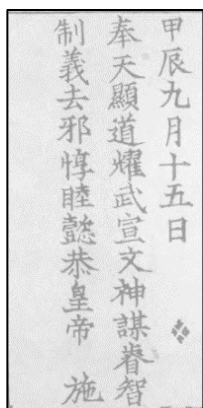 甲辰九月十五日
奉天顯道燿武宣文神謀睿智
制義去邪惇睦懿恭皇帝　施